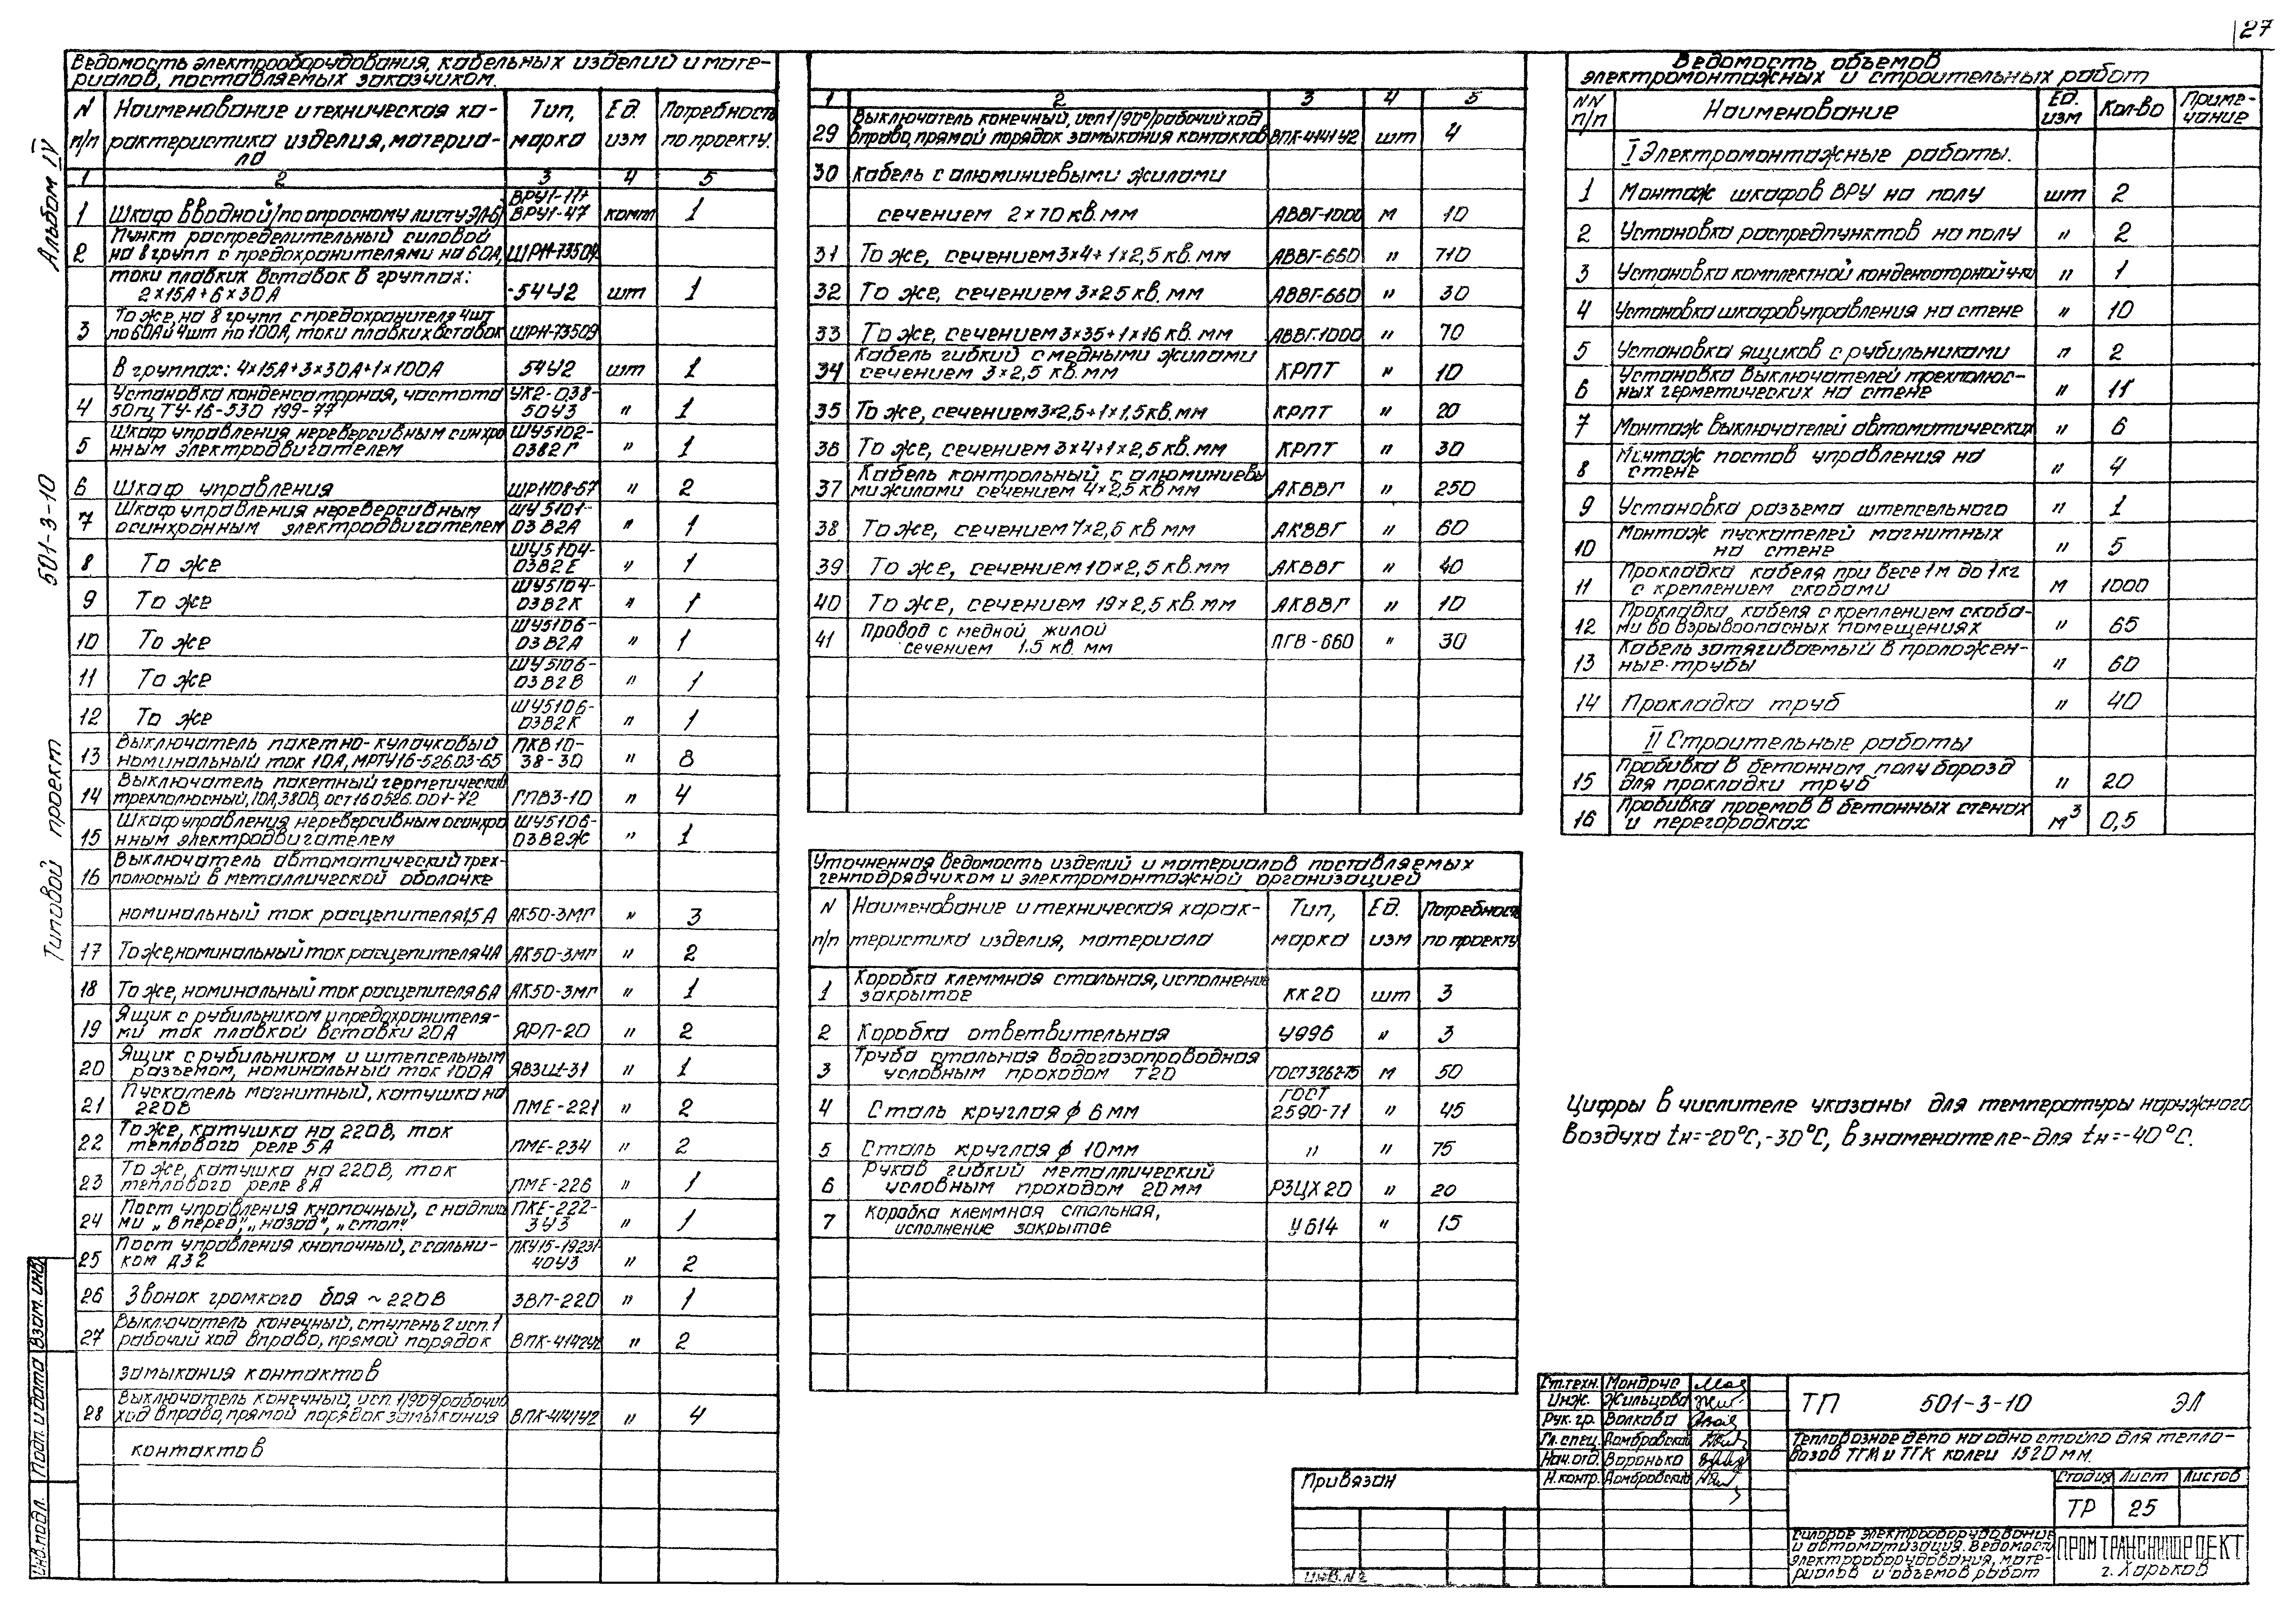 27
Альбом IV
501-3-10
Типовой проект
Взам. инв.
Подп. и дата
Инв. № подл.
Ведомость электрооборудования, кабельных изделий и мате-
риалов, поставляемых заказчиком.
N п/п | Наименование и техническая ха-рактеристика изделия, материа-ла | Тип, марка | Ед. изм | Потребность по проекту.
1 2 3 4 5
1 Шкаф вводной /по опросному листу ЭЛ-6/ ВРУ1-11+ ВРУ1-47 комт 1
2 Пункт распределительный силовой
на 8 групп с предохранителями на 60А, ШРН-73504
токи плавких вставок в группах:
2×15А+6×30А -54У2 шт 1
3 То же, на 8 групп с предохранителя 4шт
по 60А и 4шт по 100А, токи плавких вставок ШРН-73509
в группах: 4×15А+3×30А+1×100А 54У2 шт 1
4 Установка конденсаторная, частота УК2-038-
50гц ТУ-16-530 199-77 50У3 " 1
5 Шкаф управления нереверсивным синхро ШУ5102-
нным электродвигателем 03В2Г " 1
6 Шкаф управления ШР1108-67 " 2
7 Шкаф управления нереверсивным ШУ5101-
осинхронным электродвигателем 03В2А " 1
8 То же ШУ5104-03В2Е " 1
9 То же ШУ5104-03В2К " 1
10 То же ШУ5106-03В2А " 1
11 То же ШУ5106-03В2В " 1
12 То же ШУ5106-03В2К " 1
13 Выключатель пакетно-кулачковый ПКВ10-
номинальный ток 10А, МРТУ16-526.03-65 38-30 " 8
14 Выключатель пакетный герметический
трехполюсный, 10А, 380В, ост 16 0526.001-72 ГПВ3-10 " 4
15 Шкаф управления нереверсивным асинхро ШУ5106-
нным электродвигателем 03В2Ж " 1
16 Выключатель автоматический трех-
полюсный в металлической оболочке
номинальный ток расцепителя 1,5А АК50-3МГ " 3
17 То же, номинальный ток расцепителя 4А АК50-3МГ " 2
18 То же, номинальный ток расцепителя 6А АК50-3МГ " 1
19 Ящик с рубильником и предохранителя-
ми ток плавкой вставки 20А ЯРП-20 " 2
20 Ящик с рубильником и штепсельным
разъемом, номинальный ток 100А ЯВЗШ-31 " 1
21 Пускатель магнитный, катушка на
220В ПМЕ-221 " 2
22 То же, катушка на 220В, ток
теплового реле 5А ПМЕ-234 " 2
23 То же, катушка на 220В, ток
теплового реле 8А ПМЕ-226 " 1
24 Пост управления кнопочный, с надпися ПКЕ-222-
ми „вперед", „назад", „стоп" 3У3 " 1
25 Пост управления кнопочный, с сальни- ПКУ15-19231
ком Д32 40У3 " 2
26 Звонок громкого боя ~220В ЗВП-220 " 1
27 Выключатель конечный, ступень 2 исп. 1
рабочий ход вправо, прямой порядок ВПК-4142У2 " 2
замыкания контактов
28 Выключатель конечный, исп. 1/90º/рабочий
ход вправо, прямой порядок замыкания ВПК-4141У2 " 4
контактов
1 2 3 4 5
29 Выключатель конечный, исп 1/90º/рабочий ход
вправо, прямой порядок замыкания контактов ВПК-4141У2 шт 4
30 Кабель с алюминиевыми жилами
сечением 2×70 кв. мм АВВГ-1000 м 10
31 То же, сечением 3×4+1×2,5 кв. мм АВВГ-660 " 710
32 То же, сечением 3×25 кв. мм АВВГ-660 " 30
33 То же, сечением 3×35+1×16 кв. мм АВВГ-1000 " 70
34 Кабель гибкий с медными жилами
сечением 3×2,5 кв. мм КРПТ " 10
35 То же, сечением 3×2,5+1×1,5 кв. мм КРПТ " 20
36 То же, сечением 3×4+1×2,5 кв. мм КРПТ " 30
37 Кабель контрольный с алюминиевы
ми жилами сечением 4×2,5 кв мм АКВВГ " 250
38 То же, сечением 7×2,5 кв мм АКВВГ " 60
39 То же, сечением 10×2,5 кв. мм АКВВГ " 40
40 То же, сечением 19×2,5 кв. мм АКВВГ " 10
41 Провод с медной жилой
сечением 1.5 кв. мм ПГВ-660 " 30
Уточненная ведомость изделий и материалов поставляемых
генподрядчиком и электромонтажной организацией
N п/п | Наименование и техническая харак-теристика изделия, материала | Тип, марка | Ед. изм | Потребность по проекту
1 Коробка клеммная стальная, исполнение
закрытое КК20 шт 3
2 Коробка ответвительная У996 " 3
3 Труба стальная водогазопроводная
условным проходом Т20 ГОСТ3262-75 м 50
4 Сталь круглая ϕ 6 мм ГОСТ 2590-71 " 45
5 Сталь круглая ϕ 10мм " " 75
6 Рукав гибкий металлический
условным проходом 20 мм РЗЦХ20 " 20
7 Коробка клеммная стальная,
исполнение закрытое У614 " 15
Ведомость объемов
электромонтажных и строительных работ
NN п/п | Наименование | Ед. изм | Кол-во | Приме-чание
I Электромонтажные работы.
1 Монтаж шкафов ВРУ на полу шт 2
2 Установка распредпунктов на полу " 2
3 Установка комплектной конденсаторной у-ки " 1
4 Установка шкафов управления на стене " 10
5 Установка ящиков с рубильниками " 2
6 Установка выключателей трехполюс-
ных герметических на стене " 11
7 Монтаж выключателей автоматических " 6
8 Монтаж постов управления на
стене " 4
9 Установка разъема штепсельного " 1
10 Монтаж пускателей магнитных
на стене " 5
11 Прокладка кабеля при весе 1м до 1кг
с креплением скобами м 1000
12 Прокладка кабеля с креплением скоба-
ми во взрывоопасных помещениях " 65
13 Кабель затягиваемый в проложен-
ные трубы " 60
14 Прокладка труб " 40
II Строительные работы
15 Пробивка в бетонном полу борозд
для прокладки труб " 20
16 Пробивка проемов в бетонных стенах
и перегородках м³ 0,5
Цифры в числителе указаны для температуры наружного
воздуха tн=-20°С,-30°С, в знаменателе-для tн=-40°С.
Привязан
Инв. №
Ст.техн. Мондрус
Инж. Жильцова
Рук. гр. Волкова
Гл. спец. Домбровский
Нач. отд. Воронько
Н. контр. Домбровский
ТП 501-3-10 ЭЛ
Тепловозное депо на одно стойло для тепло-
возов ТГМ и ТГК колеи 1520 мм.
Стадия Лист Листов
ТР 25
Силовое электрооборудование
и автоматизация. Ведомости
электрооборудования, мате-
риалов и объемов работ
ПРОМТРАНСНИИПРОЕКТ
г. Харьков